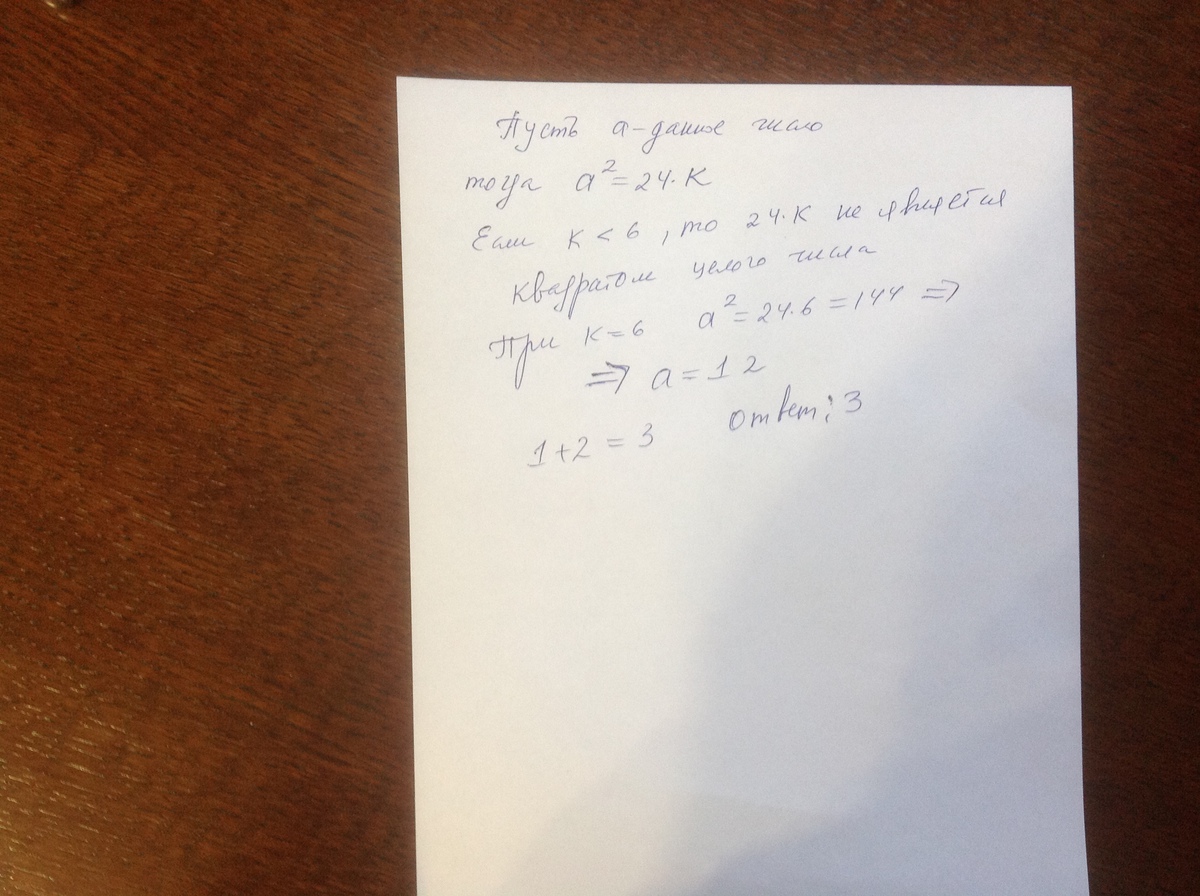 Пусть a - данное число
тогда a² = 24·K
Если K < 6, то 24·K не является
квадратом целого числа
При K = 6 a² = 24·6 = 144 ⇒
⇒ a = 12
1+2 = 3 ответ: 3